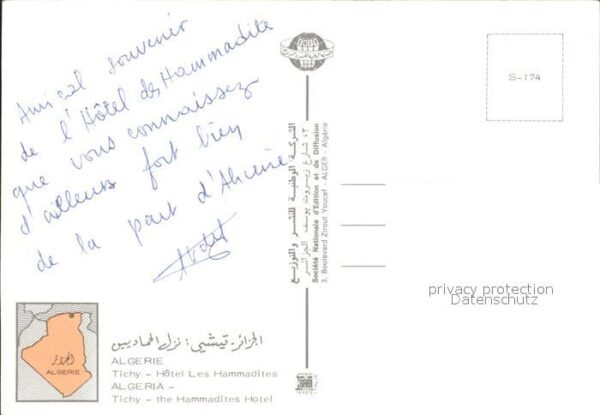 Amical souvenir
de l'Hôtel des Hammadites
que vous connaissez
d'ailleurs fort bien
de la part d'
S-174
الشركة الوطنية للنشر والتوزيع
٣، شارع زيروت يوسف الجزائر
Société Nationale d'Edition et de Diffusion
3, Boulevard Zirout Youcef - ALGER - Algérie
privacy protection
Datenschutz
الجزائر
ALGERIE
الجزائر - تيشي : نزل الحماديين
ALGERIE
Tichy - Hôtel Les Hammadites
ALGERIA -
Tichy - the Hammadites Hotel